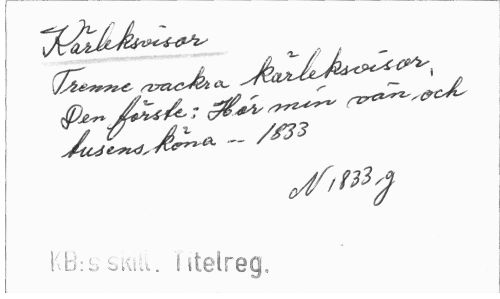 Kärleksvisor
Trenne vackra kärleksvisor,
Den förste: Hör min vän och
tusensköna -- 1833
N 1833,g
KB:s skill. Titelreg.